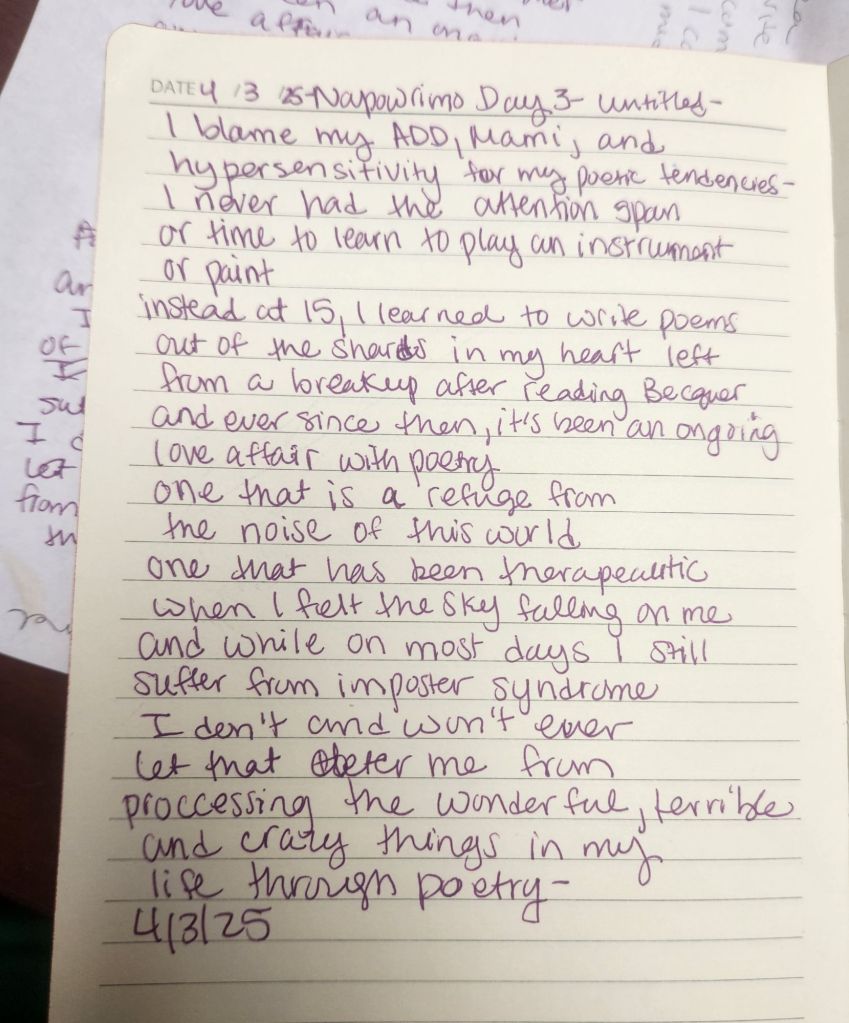 love affair
then
an
DATE 4 /3 /25-Napowrimo Day 3- untitled-
I blame my ADD, Mami, and
hypersensitivity for my poetic tendencies-
I never had the attention span
or time to learn to play an instrument
or paint
instead at 15, I learned to write poems
out of the shards in my heart left
from a breakup after reading Becquer
and ever since then, it's been an ongoing
love affair with poetry
one that is a refuge from
the noise of this world
one that has been therapeutic
when I felt the sky falling on me
and while on most days I still
suffer from imposter syndrome
I don't and won't ever
let that deter me from
proccessing the wonderful, terrible
and crazy things in my
life through poetry-
4/3/25
an
I
of
I
suf
I d
let
from
th